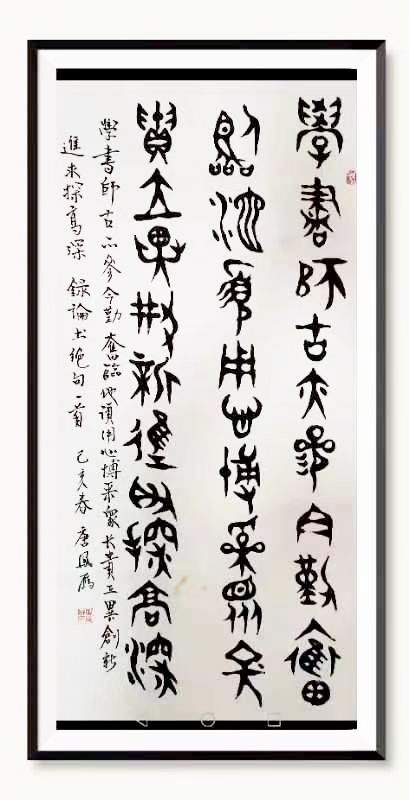 學書師古亦參今勤奮
臨池須用心博采眾長
貴立異刱新進求探高深
學書師古亦參今勤奮臨池須用心搏采眾長貴立異創新
進求探高深 錄論書絕句一首 己亥春 唐鳳